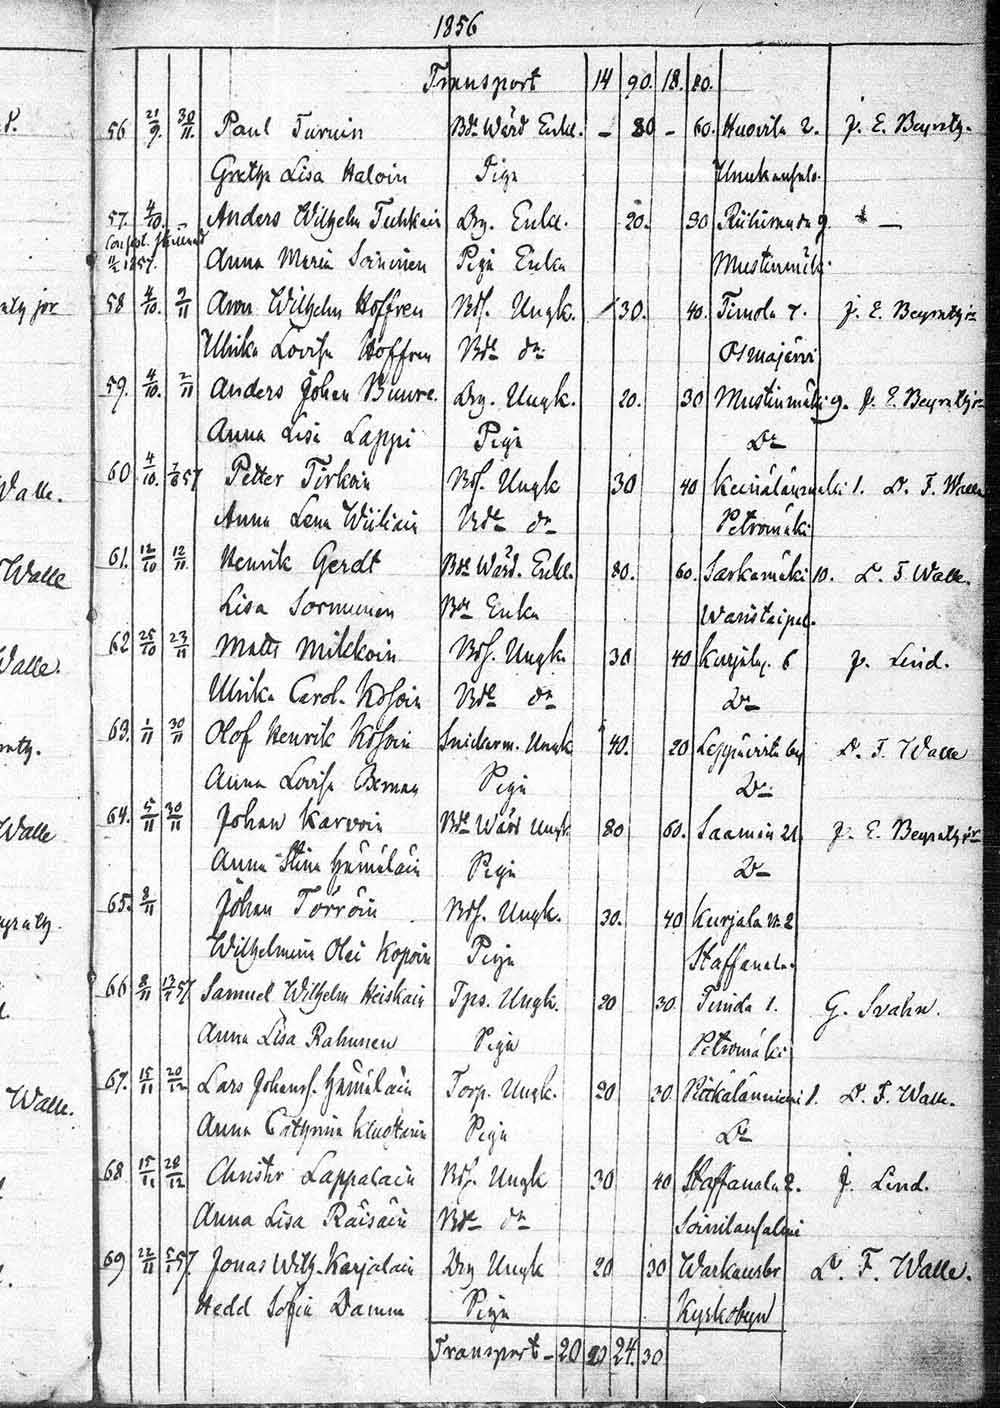 1856
Transport 14 90. 18. 80.
56 21/9. 30/11. Paul Turuin Bde Wärd Enkl. – 80 – 60. Huovila 2. J. E. Beyratj.
Gretha Lisa Haloin Piga
57. 4/10. – Anders Wilhelm Tuhkain Drg. Enkl. 20. 30 9. –
11/2 1857. Anna Maria Soininen Piga Enka Mustinmäki.
58 4/10. 2/11 Aron Wilhelm Hoffren Bds. Ungk. 30. 40. Timola 7. J. E. Beyratj jr
Ulrika Lovisa Hoffren Bde dr Osmajärvi
59. 4/10. 2/11 Anders Johan Buure. Drg. Ungk. 20. 30 Mustinmäki 9. J. E. Beyratj jr
Anna Lisa Lappi Piga Dr
60 4/10. 57 Petter Tirkoin Bds. Ungk 30 40 1. D. F. Walle
Anna Lena Wiiliain Bde dr Petromäki
61. 12/10 12/11. Henrik Gerdt Bde Wärd. Enkl. 80. 60. Sarkamäki 10. D. F. Walle.
Lisa Sormunen Bde Enka Wanstaipal.
62 25/10 23/11 Matts Mikkoin Bds. Ungk. 30 40 Kurjala. 6 J. Lind.
Ulrika Carol. Kosoin Bde dr Dr
63. 1/11 30/11 Olof Henrik Kosoin Snickarm. Ungk 40. 20 Leppävirta by D. F. Walle
Anna Lovisa Beman Piga Dr
64. 5/11 30/11 Johan Karvoin Bde Wärd Ungk 80 60. Saamain 21. J. E. Beyratj jr
Anna Stina Hämäläin Piga Dr
65. 8/11 Johan Törröin Bds. Ungk. 30. 40 Kurjala No 2
Wilhelmina Olei Kopoin Piga Staffansla.
66 8/11 57. Samuel Wilhelm Heiskain Tps. Ungk. 20 30. Timola 1. G. Svahn.
Anna Lisa Rahunen Piga Petromäki
67. 15/11 20/12 Lars Johans. Hämäläin Torp. Ungk. 20 30. 1. D. F. Walle.
Anna Cathrina Piga Dr
68 15/11 28/12 Christer Lappalain Bds. Ungk 30 40 Staffansla 2. J. Lind.
Anna Lisa Räisäin Bde dr Soinilansalmi
69 22/11 57. Jonas Wilh. Karjalain Drg Ungk 20 30 Warkausbr D. F. Walle.
Hedd Sofia Damm Piga Kyrkobyn
Transport – 20 20 24. 30